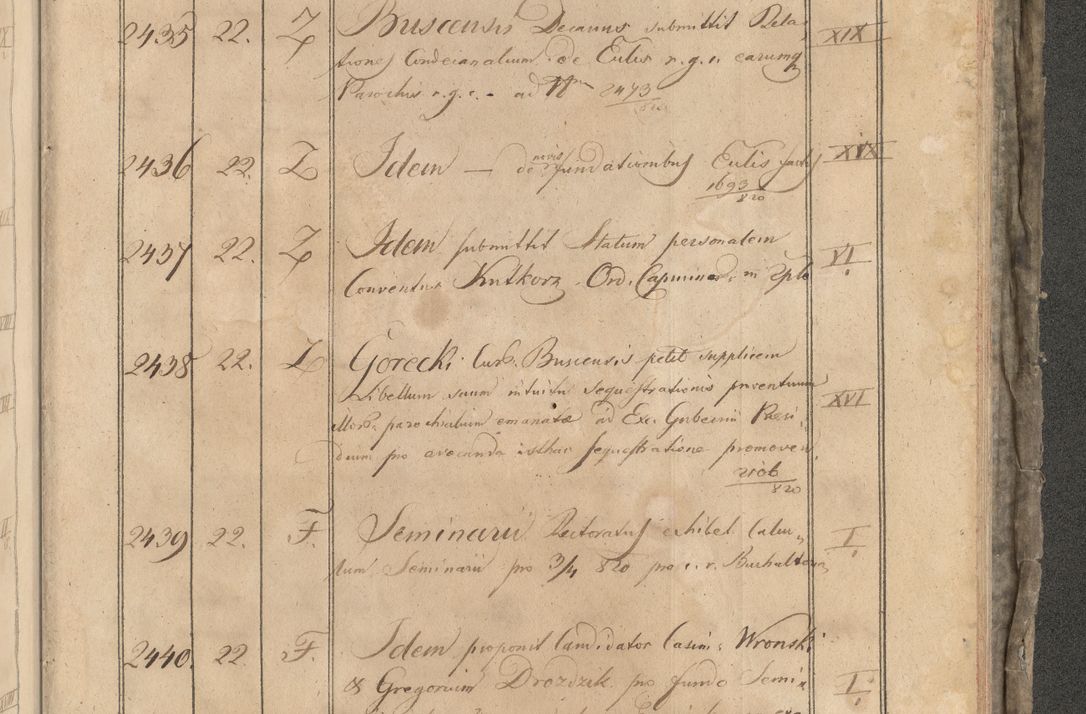 2435 22. Z Buscensis Decanus submittit Rela-
tiones Condecanalium de Eccliis r.g.c. earumq
Parochis r.g.c. - ad Nrm 2473/820 XIX
2436 22. Z Idem — de novis fundationibus Eccliis factis XIX
1693/820
2437 22. Z Idem submittit Statum personalem
Conventus Kutkorz Ord. Capucinor. in dplo VI
2438 22. Z Gorecki Cur. Buscensis petit supplicem
Libellum suum intuitu sequestrationis proventuum
parochialium emanatae ad Exc. Gubernii Praesi-
dium pro avocanda isthac sequestratione promoveri XVI
2106/820
2439 22. F. Seminarii Rectoratus exhibet Calcu-
lum Seminarii pro 3/4 820 pro c. r. Buchalteria I
2440. 22. F. Idem proponit Candidatos Casim. Wronski
& Gregorium Drozdzik pro fundo Semi- I